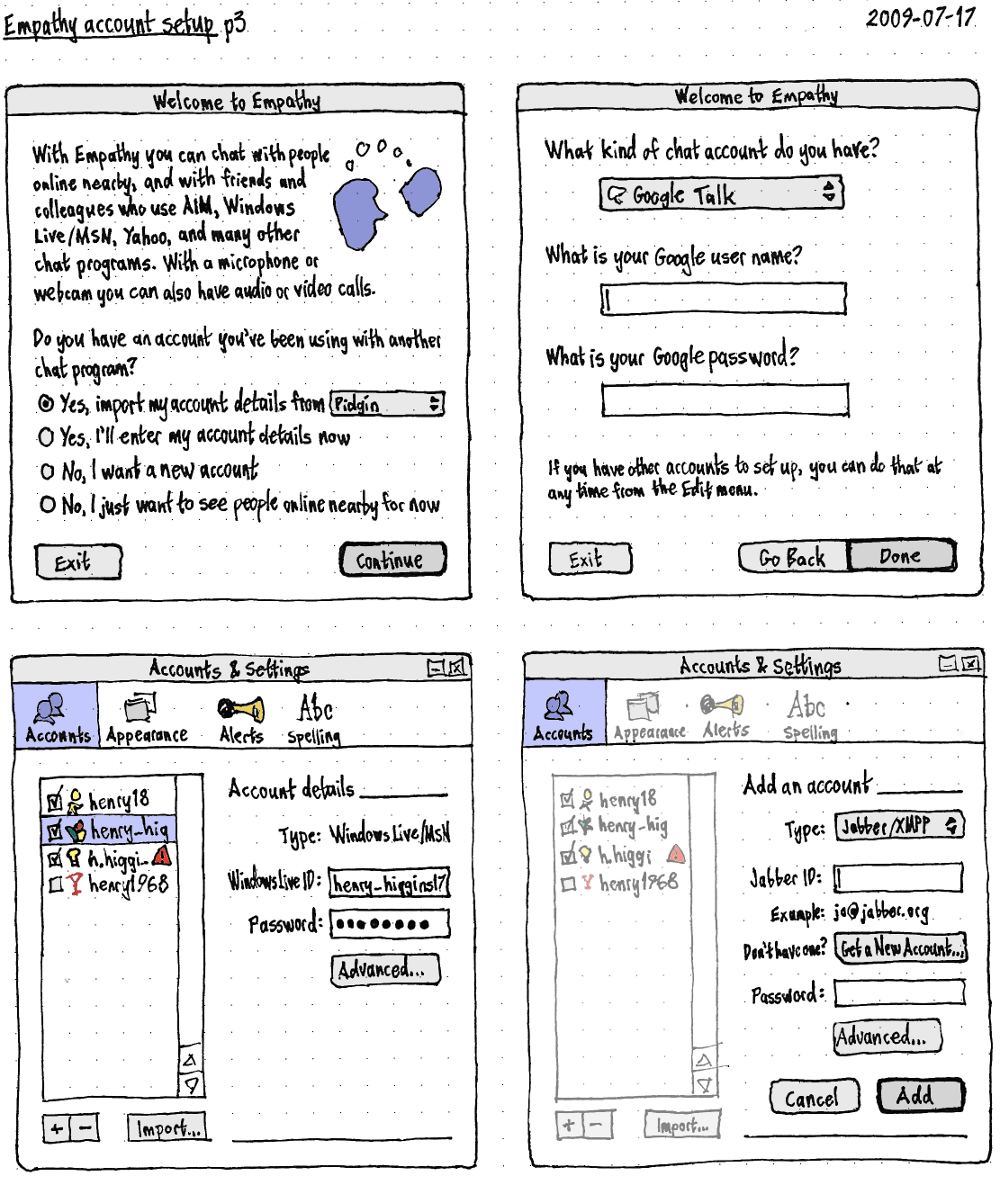 Empathy account setup p3
2009-07-17
Welcome to Empathy
With Empathy you can chat with people
online nearby, and with friends and
colleagues who use AIM, Windows
Live/MSN, Yahoo, and many other
chat programs. With a microphone or
webcam you can also have audio or video calls.
Do you have an account you've been using with another
chat program?
Yes, import my account details from Pidgin
Yes, I'll enter my account details now
No, I want a new account
No, I just want to see people online nearby for now
Exit
Continue
Welcome to Empathy
What kind of chat account do you have?
Google Talk
What is your Google user name?
What is your Google password?
If you have other accounts to set up, you can do that at
any time from the Edit menu.
Exit
Go Back
Done
Accounts & Settings
Accounts
Appearance
Alerts
Abc
Spelling
henry18
henry_hig
h.higgi_
henry1968
+ −
Import...
Account details
Type: Windows Live/MSN
Windows Live ID: henry_higgins17
Password: ••••••••
Advanced...
Accounts & Settings
Accounts
Appearance
Alerts
Abc
Spelling
henry18
henry-hig
h.higgi
henry1968
+ −
Import...
Add an account
Type: Jabber/XMPP
Jabber ID:
Example: jo@jabber.org
Don't have one? Get a New Account...
Password:
Advanced...
Cancel
Add